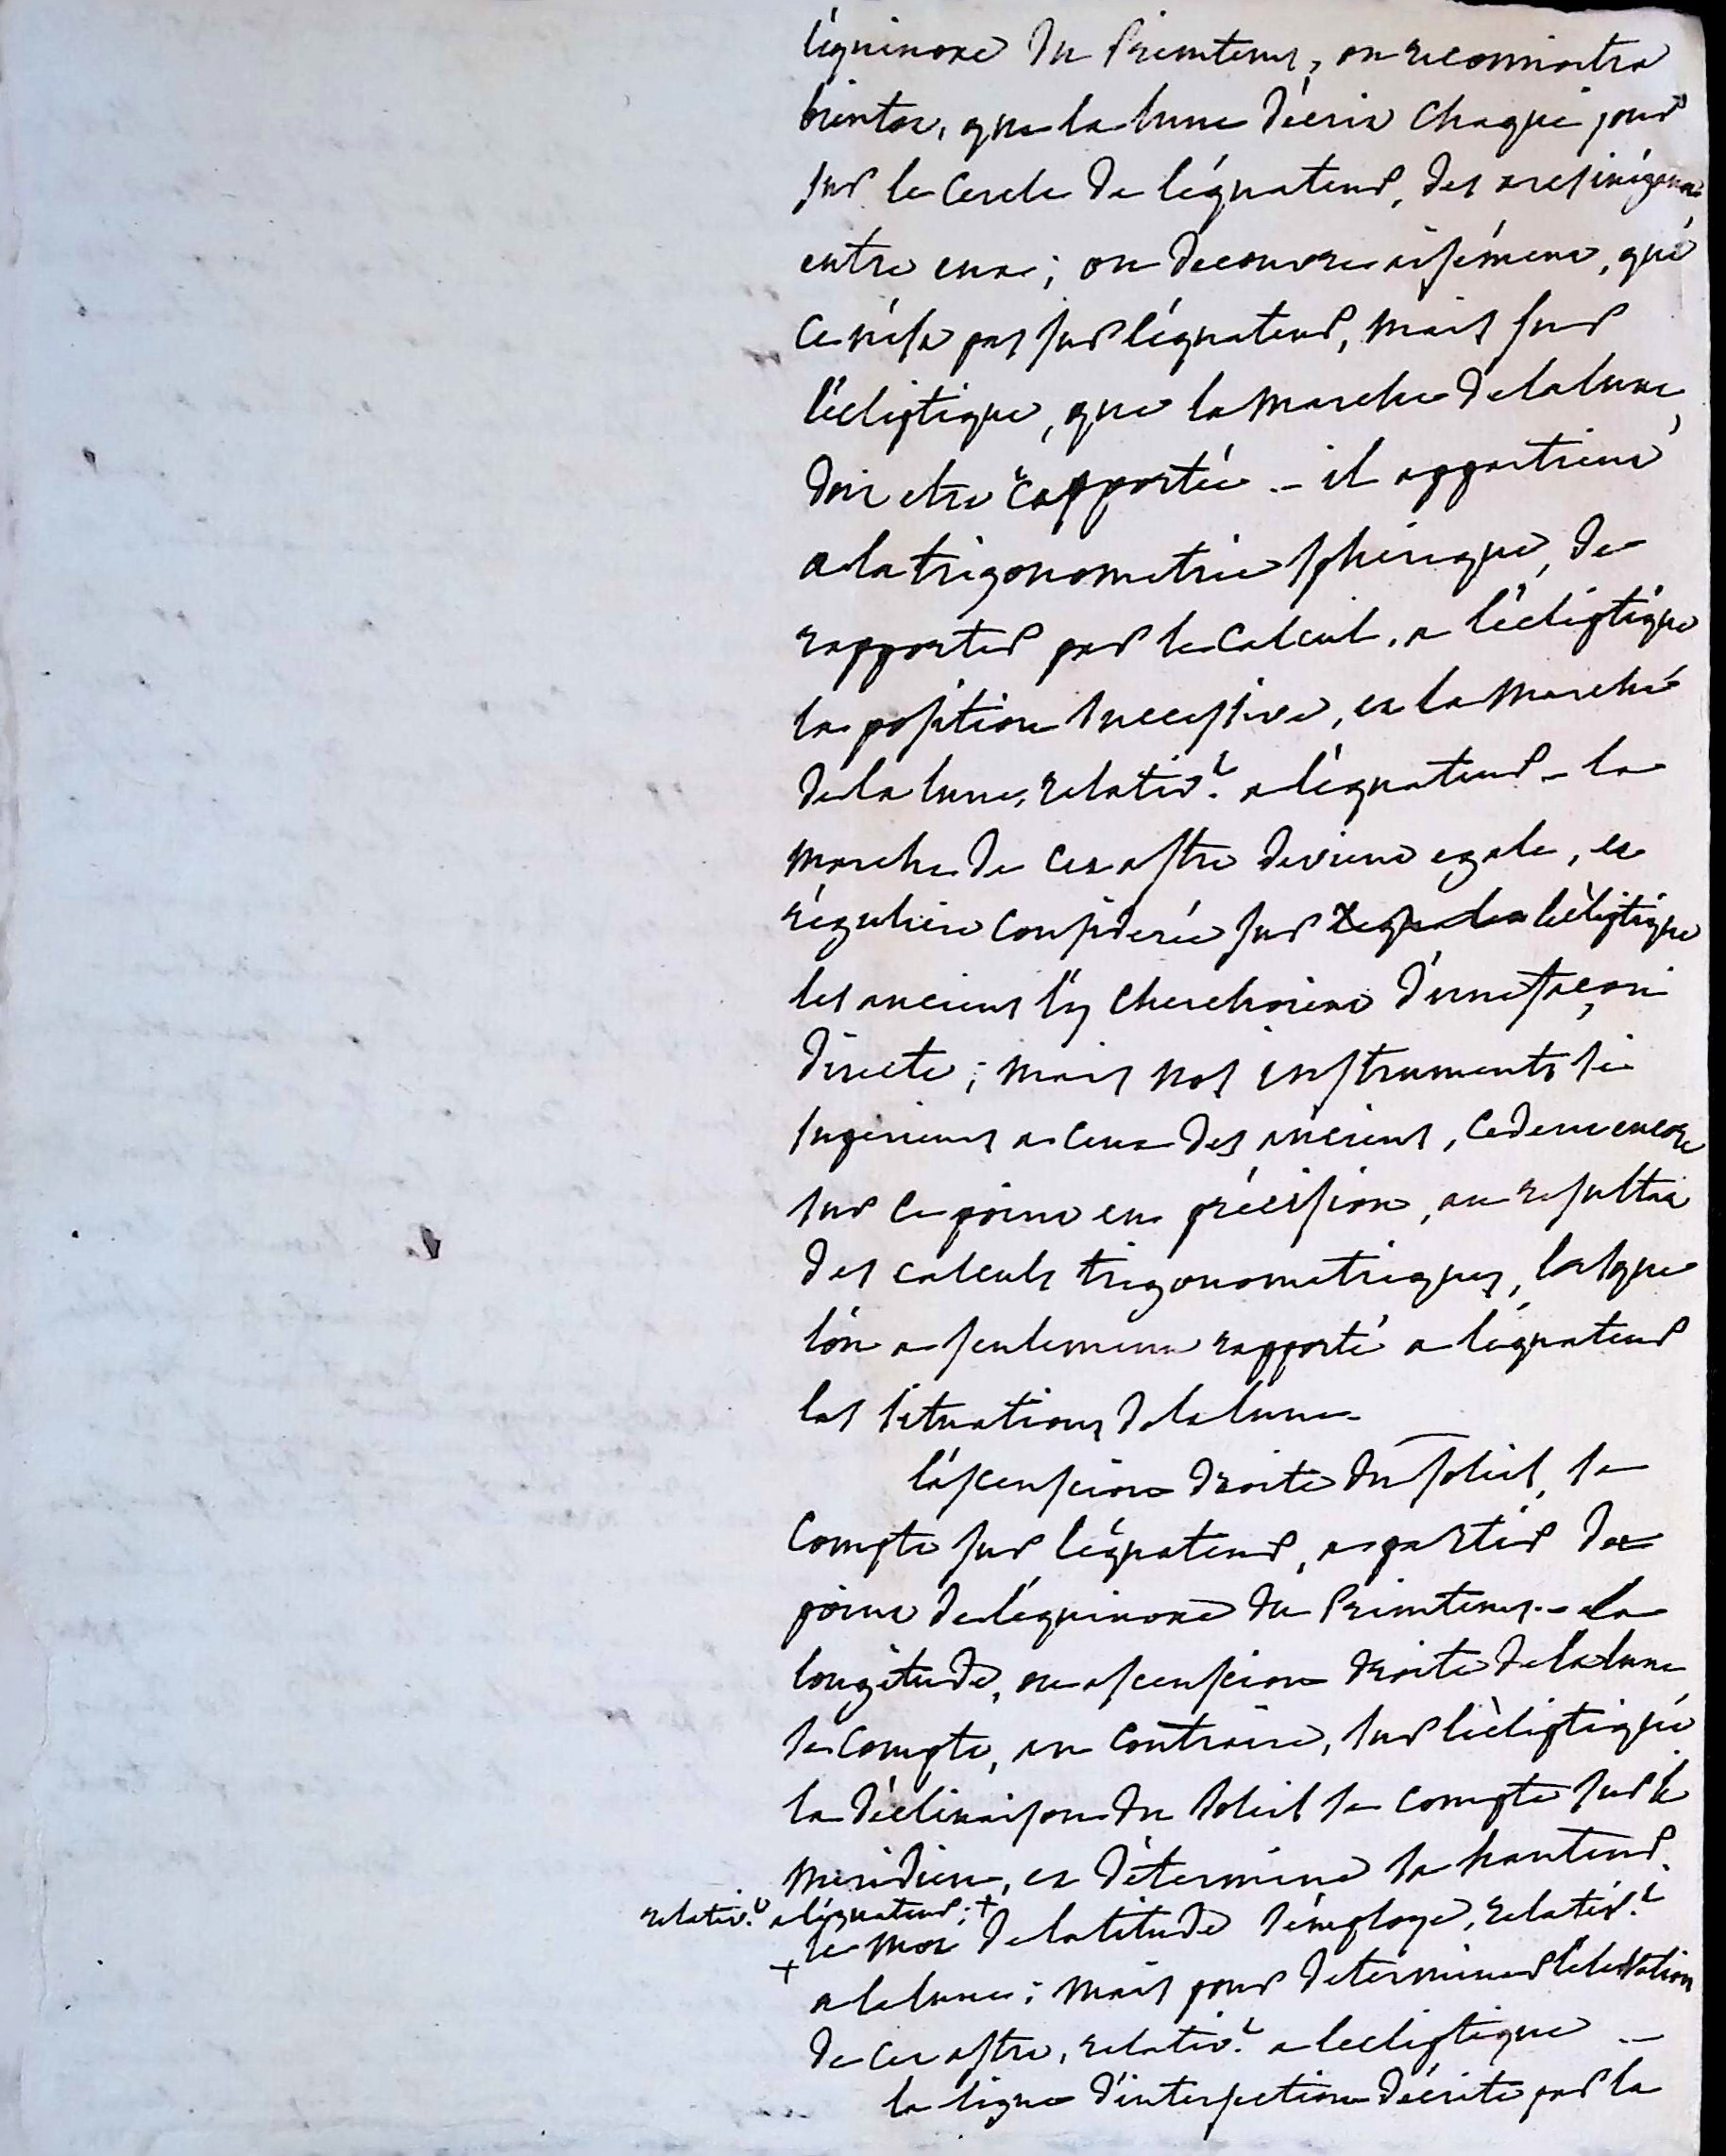 l'équinoxe du Printems, on reconnoitra
bientot, que la lune décrit chaque jour
sur le cercle de l'équateur, des arcs inégaux
entre eux; on decouvre aisément, que
ce n'ést pas sur l'équateur, mais sur
l'écliptique, que la marche de la lune,
doit etre rapportée – il appartient
a la trigonometrie spherique, de
rapporter par le calcul, a l'écliptique
la position successive, et la marche
de la lune, relativ.t a l'équateur – la
marche de cet astre devient egale, et
réguliere considerée sur l'écliptique
les anciens l'y cherchoient d'une façon
directe; mais nos instruments si
superieurs a ceux des anciens, cedent encore
sur ce point en précision, au resultat
des calculs trigonometriques, lorsque
l'on a seulement rapporté a l'équateur
les situations de la lune.
l'ascension droite du soleil, se
compte sur l'équateur, a partir du
point de l'équinoxe du Printems. – la
longitude, ou ascension droite de la lune
se compte, au contraire, sur l'écliptique
la déclinaison du soleil se compte sur le
meridien, et détermine sa hauteur
relativ.t a l'équateur; +
+ le mot de latitude s'émploye, relativ.t
a la lune; mais pour determiner l'elevation
de cet astre, relativ.t a l'ecliptique –
la ligne d'intersection décrite par la